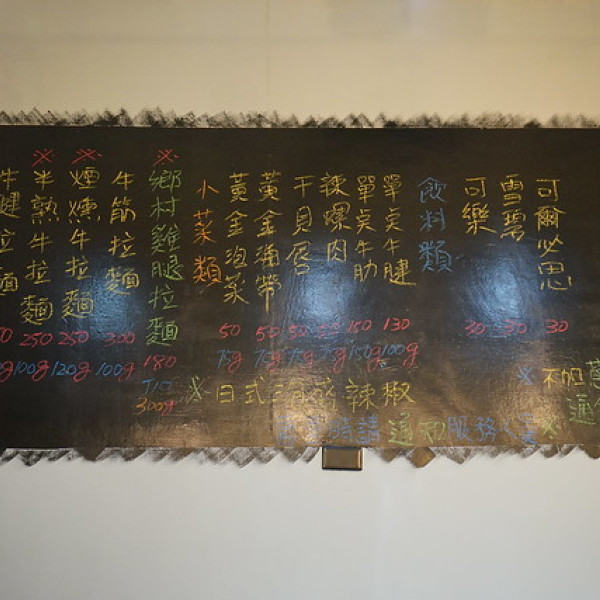 ※半熟牛拉麵 250 100g
※煙燻牛拉麵 250 120g
牛筋拉麵 300 100g
※鄉村雞腿拉麵 180 300g
小菜類
黃金泡菜 50 75g
黃金海帶 50 75g
干貝唇 50 75g
辣螺肉 50 75g
單點牛肋 150 150g
單點牛腱 130 100g
飲料類
可樂 30
雪碧 30
可爾必思 30
※日式 辣椒
時請通知服務人員